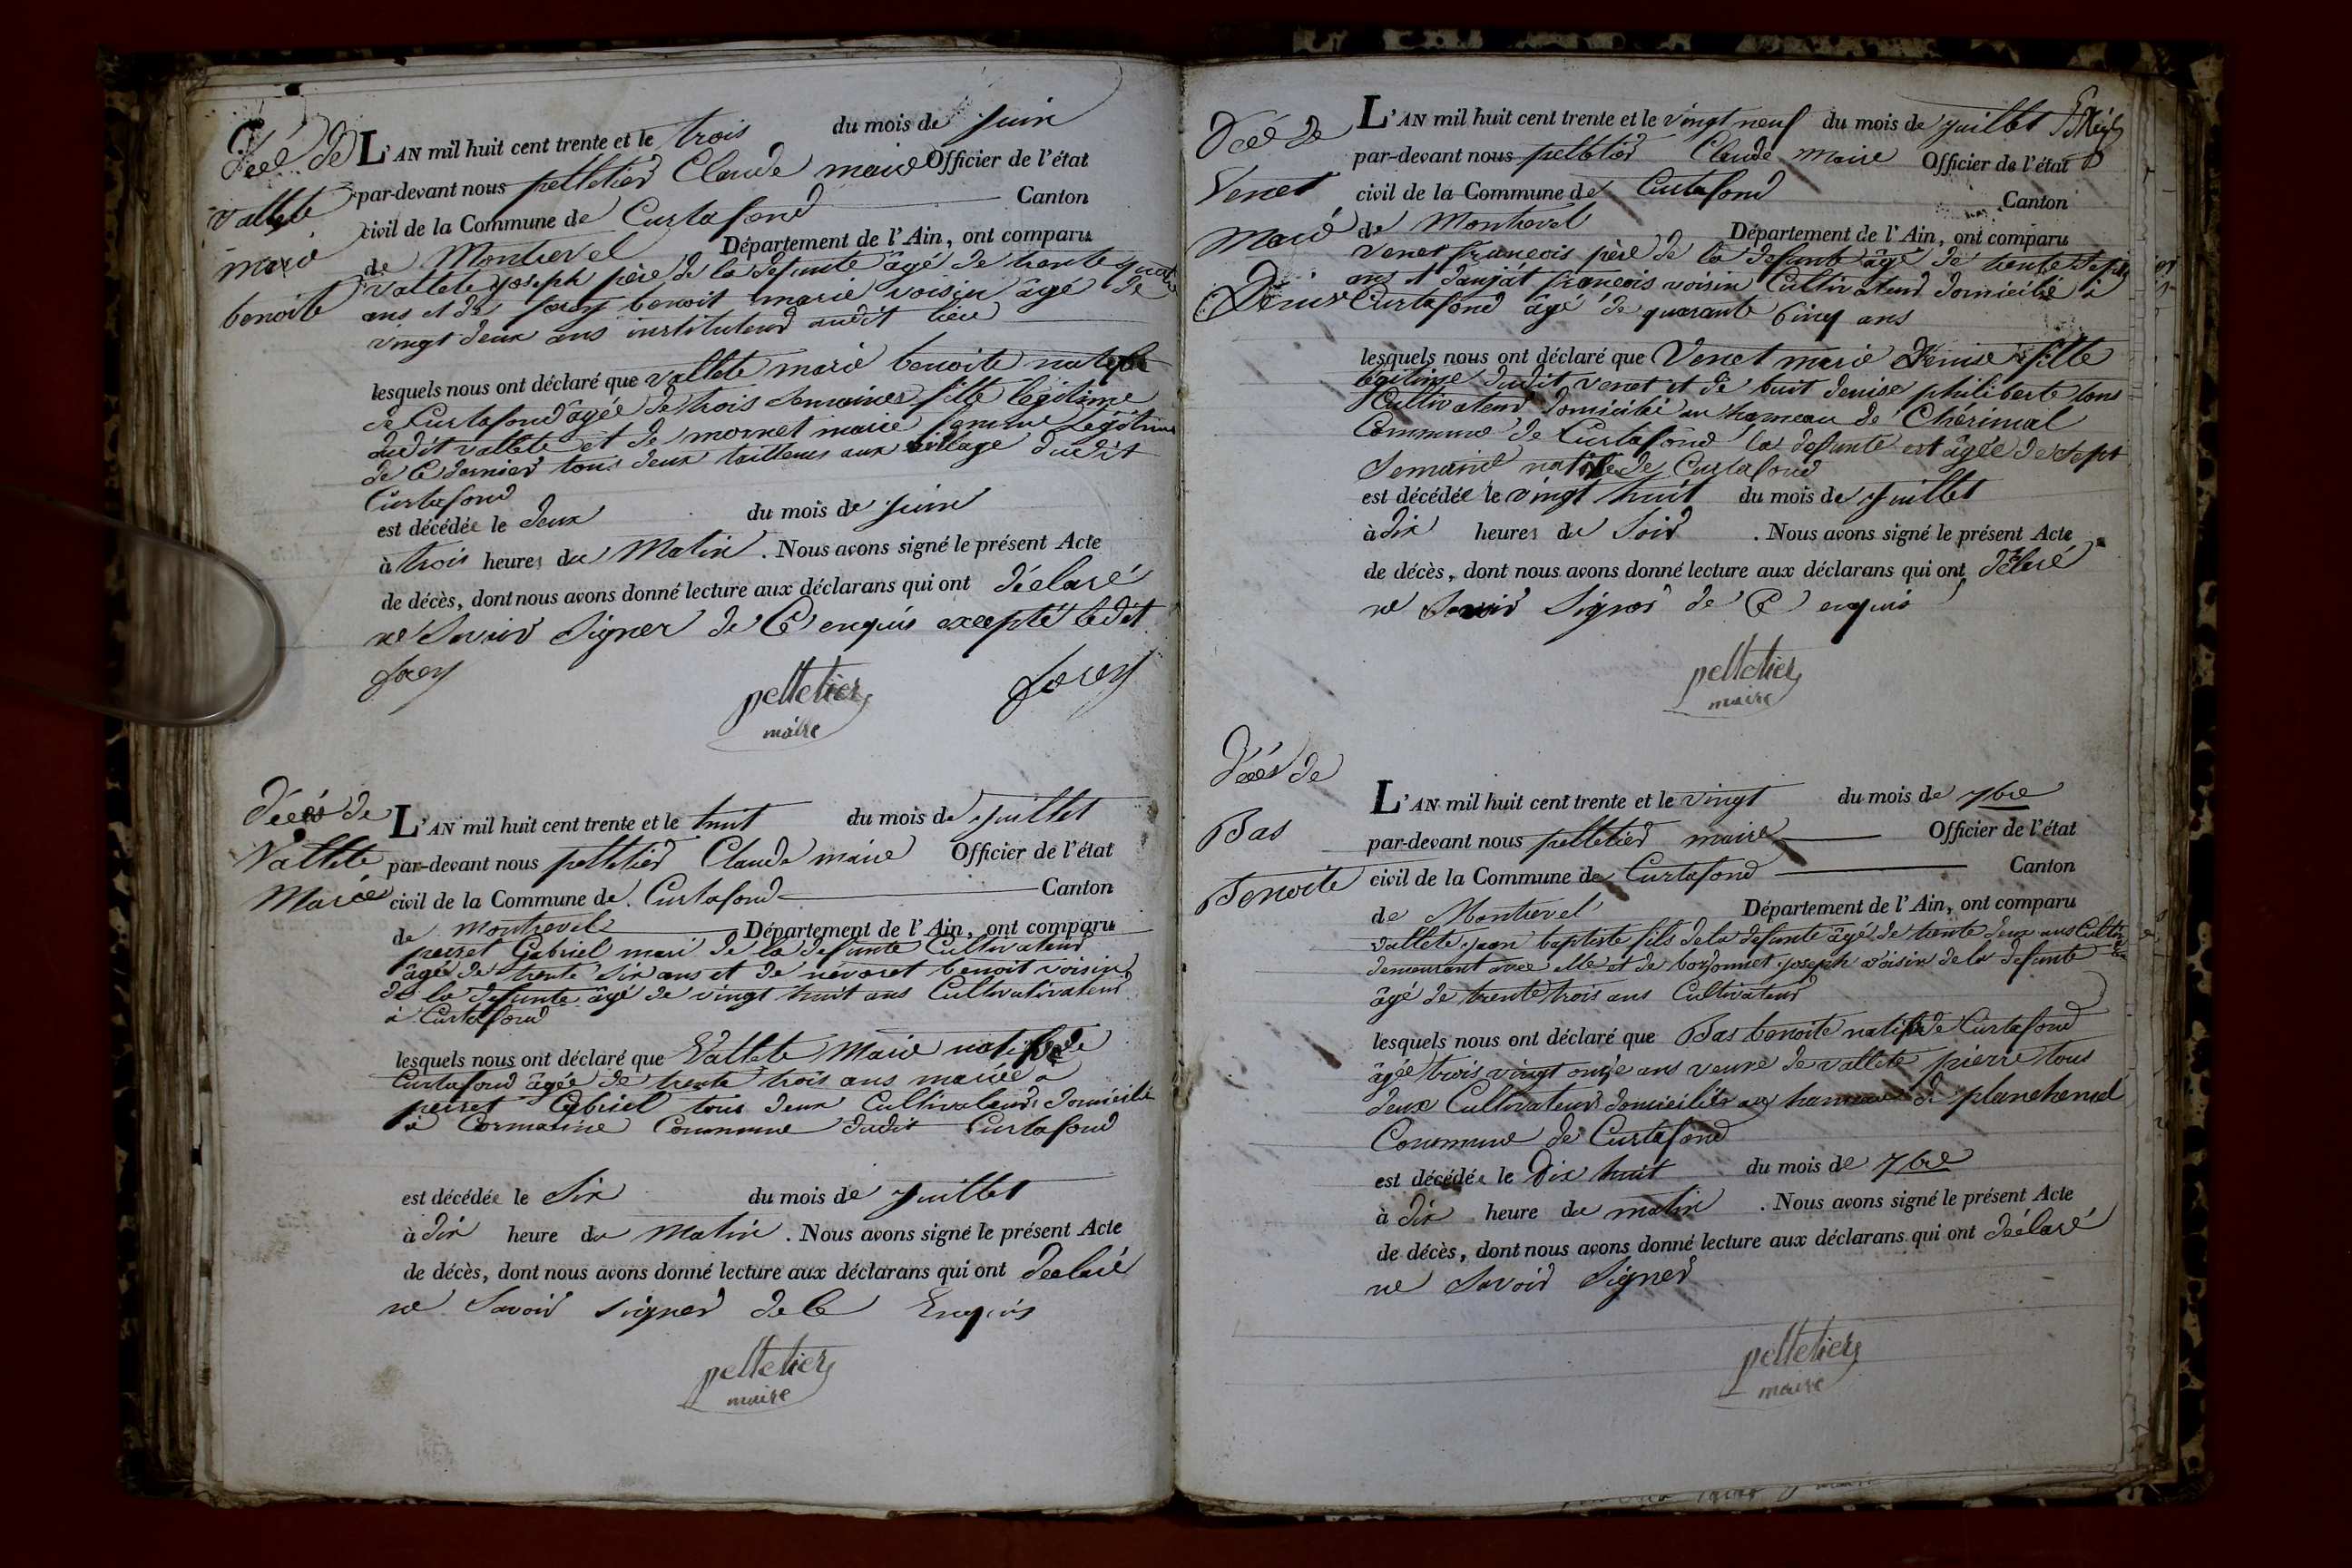 Décé de
Vallete
marie
benoite
L'AN mil huit cent trente et le trois du mois de juin
par-devant nous pelletier Claude maire Officier de l'état
civil de la Commune de Curtafond Canton
de Montrevel Département de l'Ain, ont comparu
vallete joseph père de la defunte âgé de trente quatre
ans et de forey benoit marie voisin âgé de
vingt deux ans instituteur audit lieu
lesquels nous ont déclaré que vallete marie benoite native
de Curtafond âgée de trois semaines fille legitime
dudit vallete et de mornet marie femme Légitime
de Ce dernier tous deux tailleurs aux village dudit
Curtafond
est décédée le deux du mois de juin
à trois heures du Matin. Nous avons signé le présent Acte
de décès, dont nous avons donné lecture aux déclarans qui ont déclaré
ne Savoir Signer de Ce enquis excepté ledit
forey
pelletier
maire
forey
Décès de
Vallete
Marie
L'AN mil huit cent trente et le huit du mois de juillet
par-devant nous pelletier Claude maire Officier de l'état
civil de la Commune de Curtafond Canton
de montrevel Département de l'Ain, ont comparu
perret Gabriel mari de la defunte Cultivateur
âgé de trente six ans et de nevoret benoit voisin
de la defunte âgé de vingt huit ans Cultivativateur
à Curtafond
lesquels nous ont déclaré que Vallete Marie native de
Curtafond âgée de trente trois ans mariée a
perret Gabriel tous deux Cultivateurs domicilié
à Cormarine Commune dudit Curtafond
est décédée le Six du mois de juillet
à dix heure du Matin. Nous avons signé le présent Acte
de décès, dont nous avons donné lecture aux déclarans qui ont declaré
ne Savoir signer de Ce Enquis
pelletier
maire
Décé de
Venet
Marie
Denise
L'AN mil huit cent trente et le vingt neuf du mois de juillet
par-devant nous pelletier Claude Maire Officier de l'état
civil de la Commune de Curtafond Canton
de Montrevel Département de l'Ain, ont comparu
venet françois père de la defunte âgé de trente Sept
ans et daujat françois voisin Cultivateur domicilié à
Curtafond âgé de quarante Cinq ans
lesquels nous ont déclaré que Venet marie Denise fille
legitime dudit venet et de buit denise philiberte tous
Cultivateur domicilié au hameau de Chérinal
Commune de Curtafond la defunte est âgée de sept
Semaine native de Curtafond
est décédée le vingt huit du mois de juillet
à dix heures du Soir. Nous avons signé le présent Acte
de décès, dont nous avons donné lecture aux déclarans qui ont déclaré
ne Savoir Signer de Ce enquis
pelletier
maire
Décès de
Bas
Benoite
L'AN mil huit cent trente et le vingt du mois de 7bre
par-devant nous pelletier maire Officier de l'état
civil de la Commune de Curtafond Canton
de Montrevel Département de l'Ain, ont comparu
vallete jean baptiste fils de la defunte âgé de trente deux ans
demeurant avec elle et de borjonnet joseph voisin de la defunte
âgé de trente trois ans Cultivateur
lesquels nous ont déclaré que Bas benoite native de Curtafond
âgée trois vingt onze ans veuve de vallete pierre tous
deux Cultivateur domiciliés au hameau de planchemel
Commune de Curtafond
est décédée le Dix huit du mois de 7bre
à dix heure du matin. Nous avons signé le présent Acte
de décès, dont nous avons donné lecture aux déclarans qui ont déclaré
ne Savoir Signer
pelletier
maire